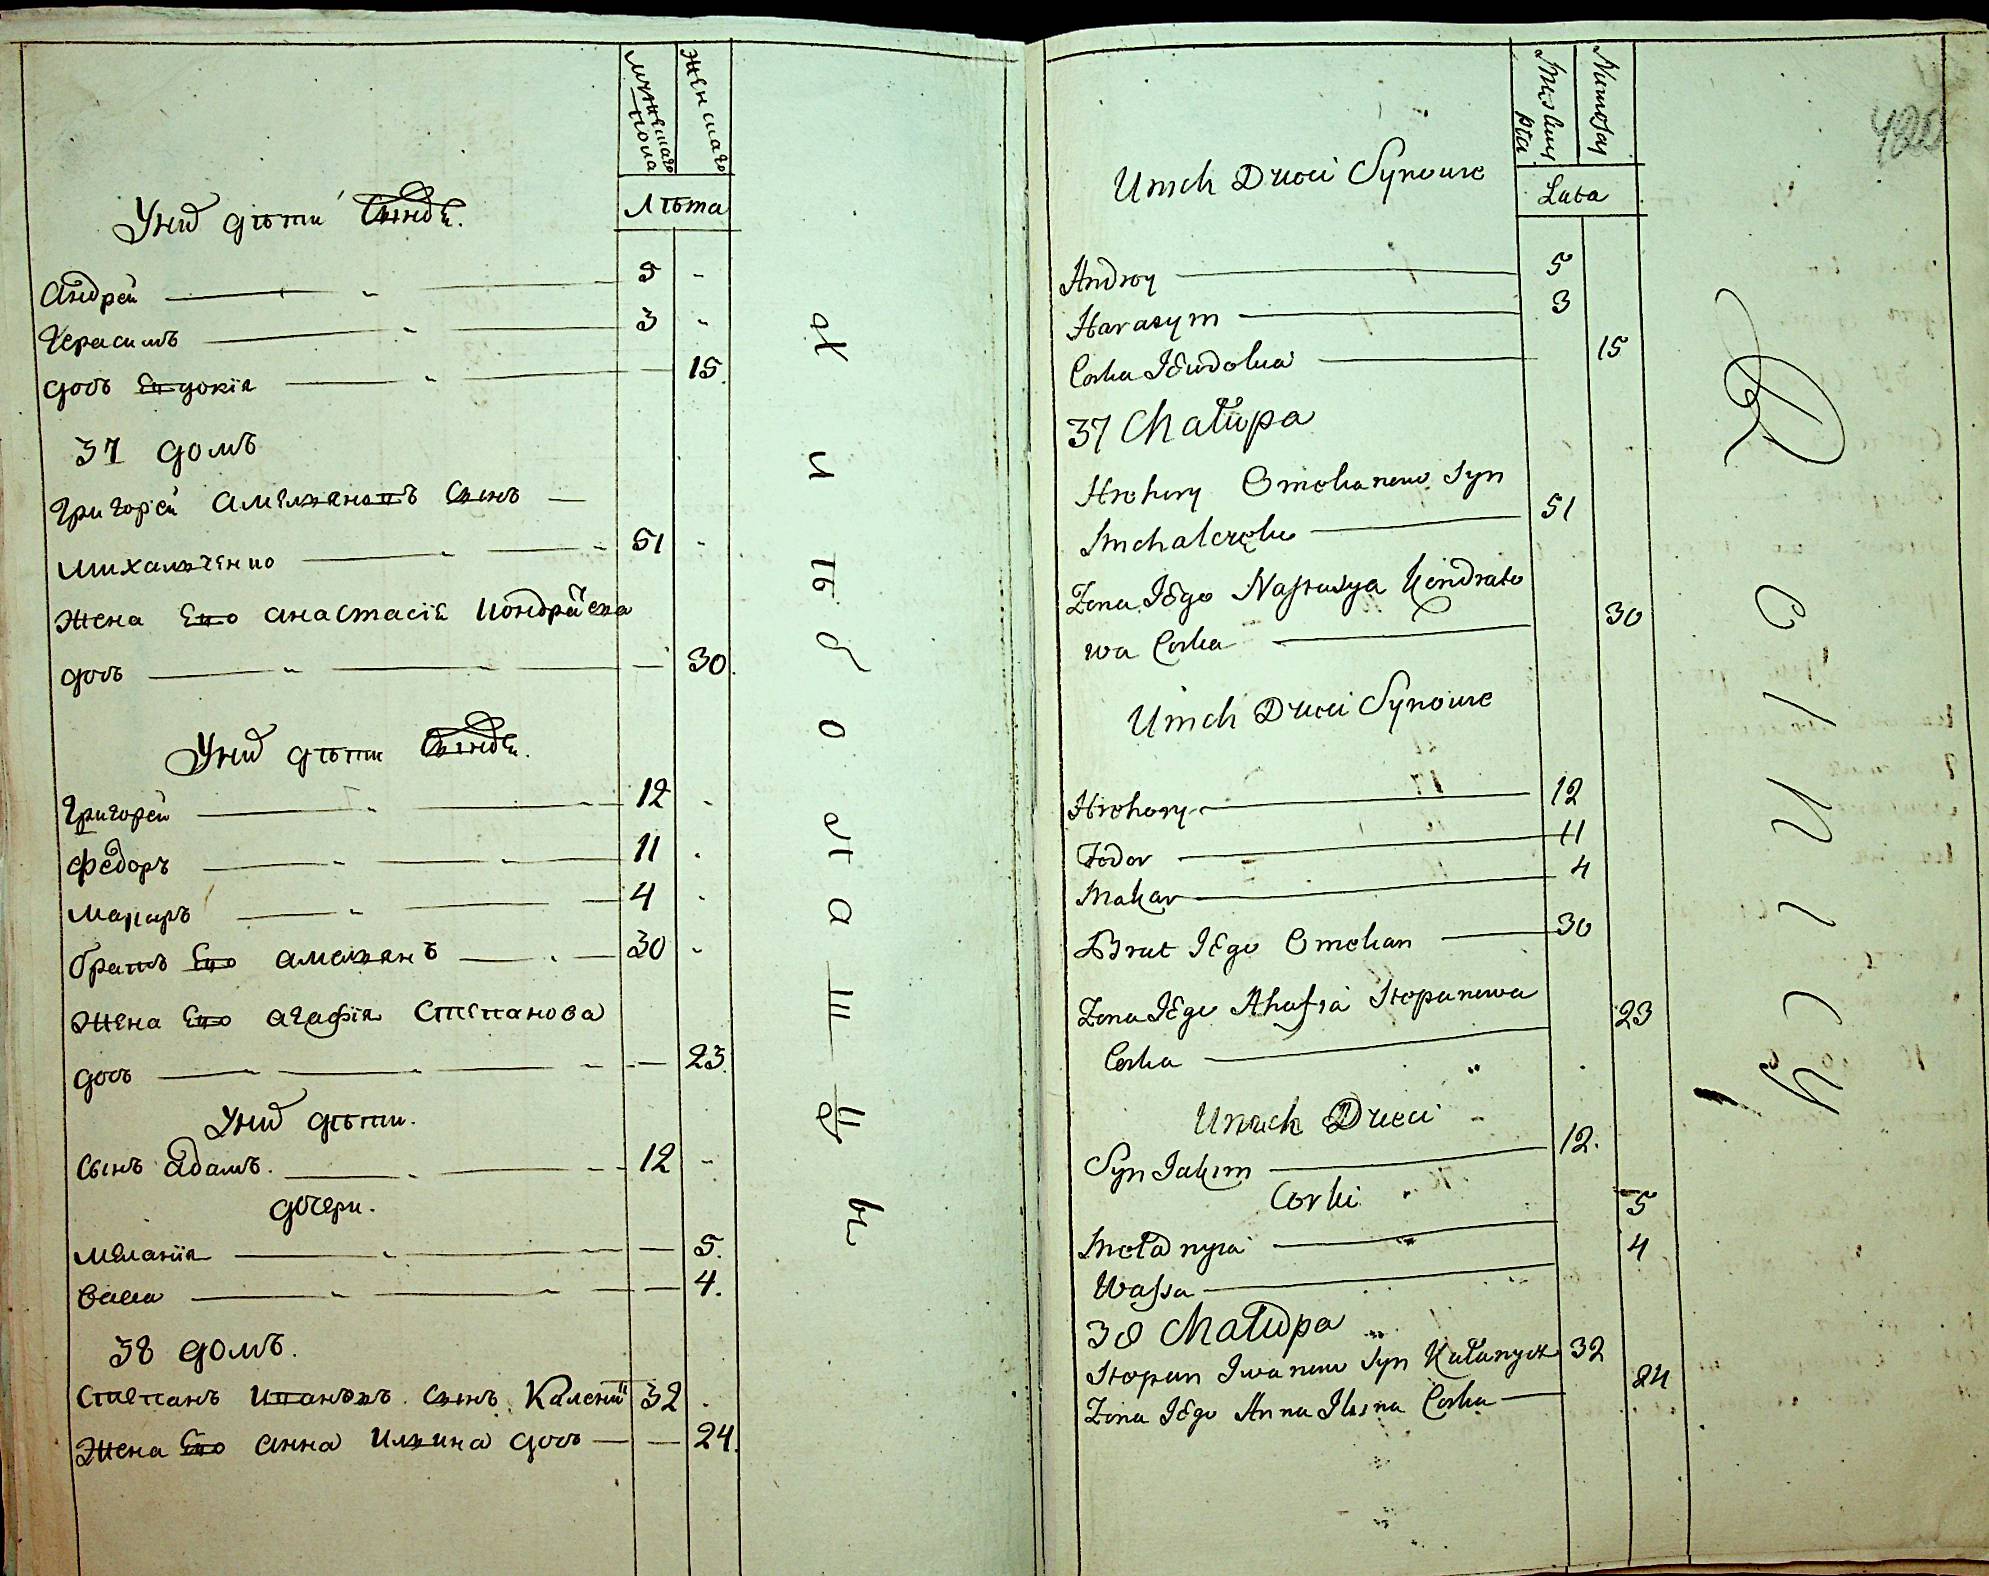 Мужешаго пола
Женшаго
Лѣта
У нид дѣти Сыновѣ.
Андрей 5 -
Герасимъ 3 -
дочь Евдокія 15.
37 домъ
Григорей Амельяновъ сынъ
Михальченко 51 -
Жена Его Анастасіѣ Кондратева
дочь 30.
У нид дѣти Сыновѣ.
Григорей 12 -
Федоръ 11 -
Макаръ 4 -
братъ Его Амельянъ 30 -
Жена Его Агафія Степанова
дочь 23.
У нид дѣти.
Сынъ Адамъ. 12 -
дочери.
Меланія 5.
Васса 4.
38 домъ.
Степанъ Ивановъ Сынъ Калени 32 -
Жена Его Анна Ильина дочь 24.
480
Męskiey płci
Lata
Unich Dzieci Synowie
Andrey 5
Harasym 3
Corka JEwdokia 15
37 Chałupa
Hrehory Omelianow Syn
Michalczęko 51
Zona JEgo Nastasya Kondrato
wa Corka 30
Unich Dzieci Synowie
Hrehory 12
Fedor 11
Makar 4
Brat JEgo Omelian 30
Zona JEgo Ahafia Stepanowa
Corka 23
Unich Dzieci
Syn Jakim 12.
Corki
Mełanyia 5
Wassa 4
38 Chałupa
Stepan Iwanow Syn Kałanycz 32
Zona JEgo Anna Ilina Corka 24